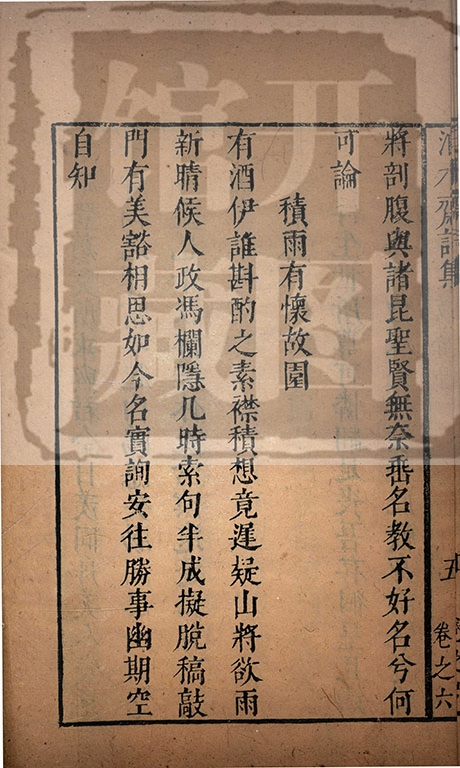 將剖腹與諸昆聖賢無奈垂名教不好名兮何
可論
積雨有懷故園
有酒伊誰斟酌之素襟積想竟遲疑山將欲雨
新晴候人政馮欄隱几時索句半成擬脫稿敲
門有美豁相思如今名實詢安往勝事幽期空
自知
五
卷之六